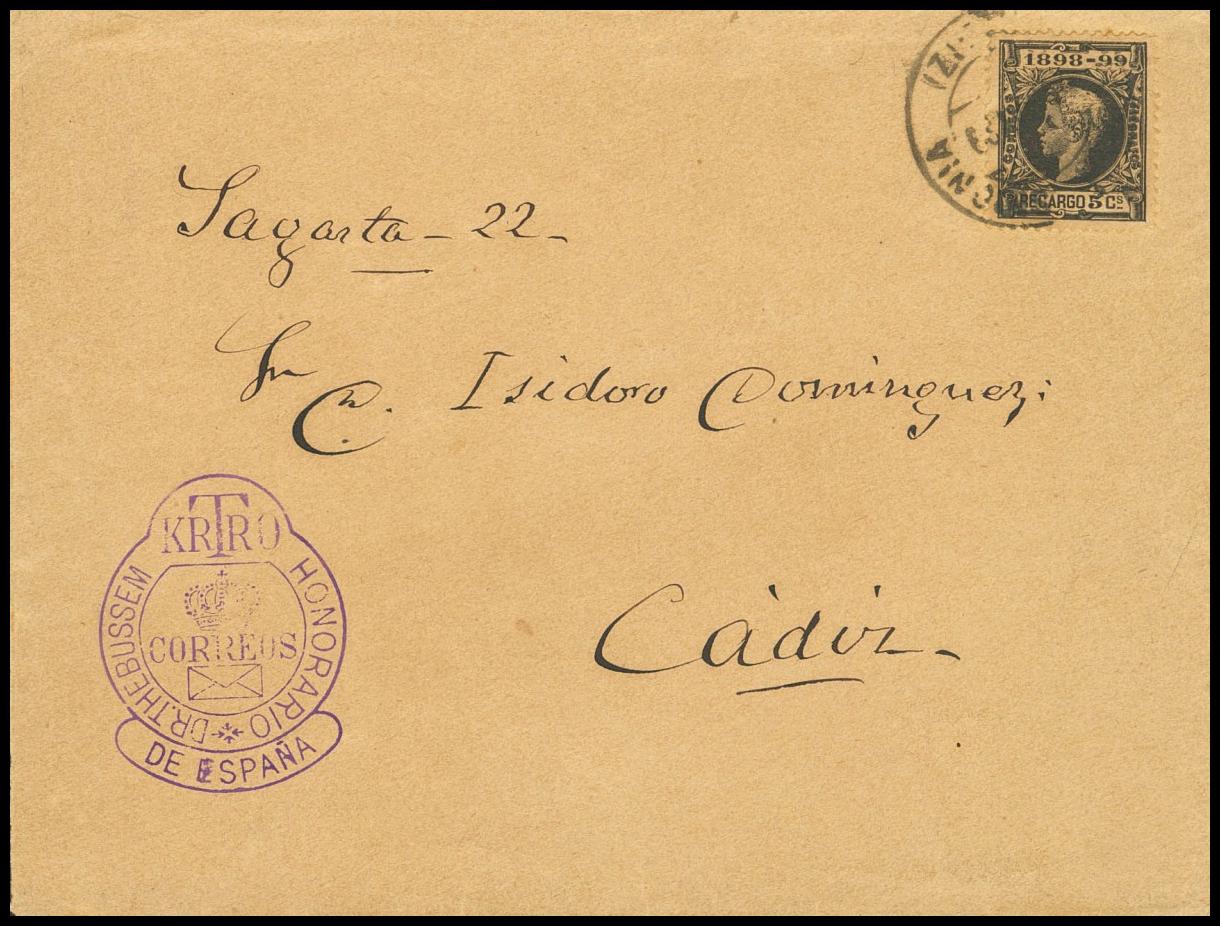 1898-99
CORREOS
RECARGO 5 Cs
Sagasta - 22 -
Sr
D. Isidoro Dominguez:
Càdiz -
KRTRO
DR. THEBUSSEM
HONORARIO
CORREOS
DE ESPAÑA